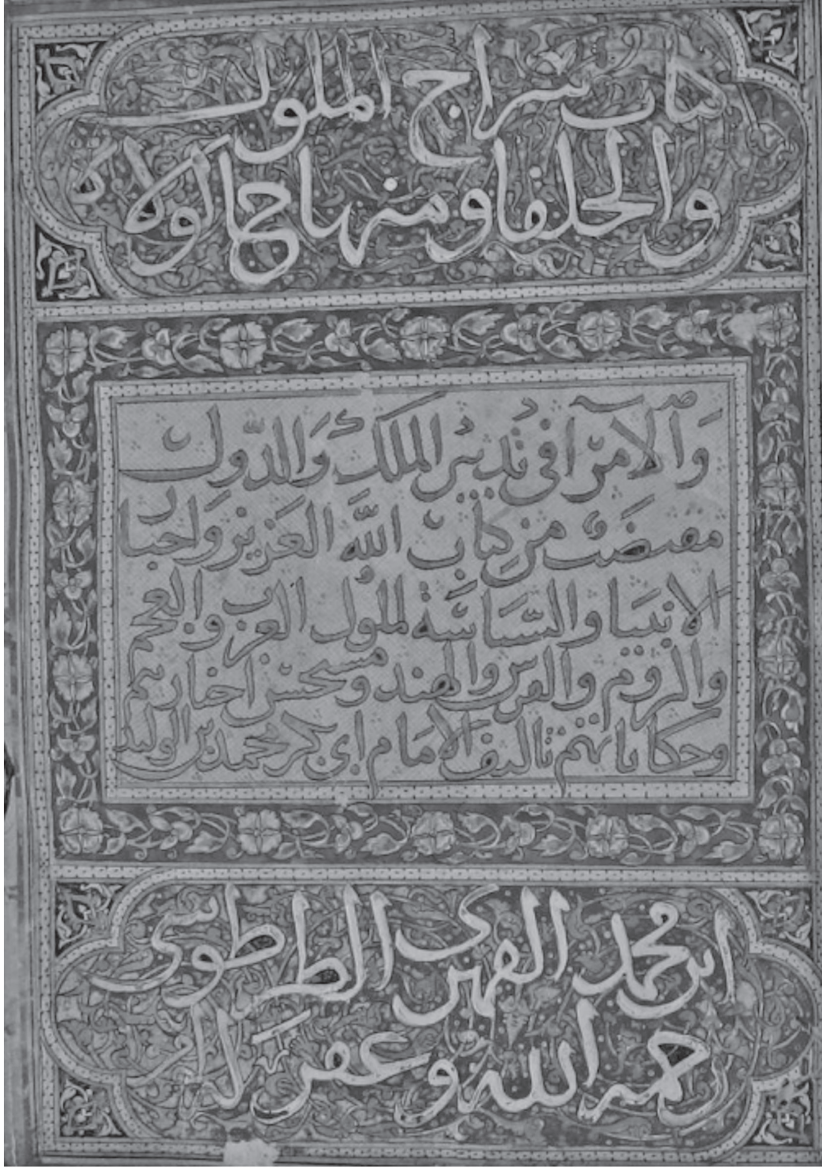 كتاب سراج الملوك
والخلفا ومنهاج الولاة
والأمرا في تدبير الملك والدول
مقتضب من كتاب الله العزيز واخبار
الانبيا والسياسة لملوك العرب والعجم
والروم والفرس والهند ومستحسن اخبارهم
وحكاياتهم تاليف الامام ابي بكر محمد بن الوليد
ابن محمد الفهرى الطرطوسي
رحمه الله وغفر له